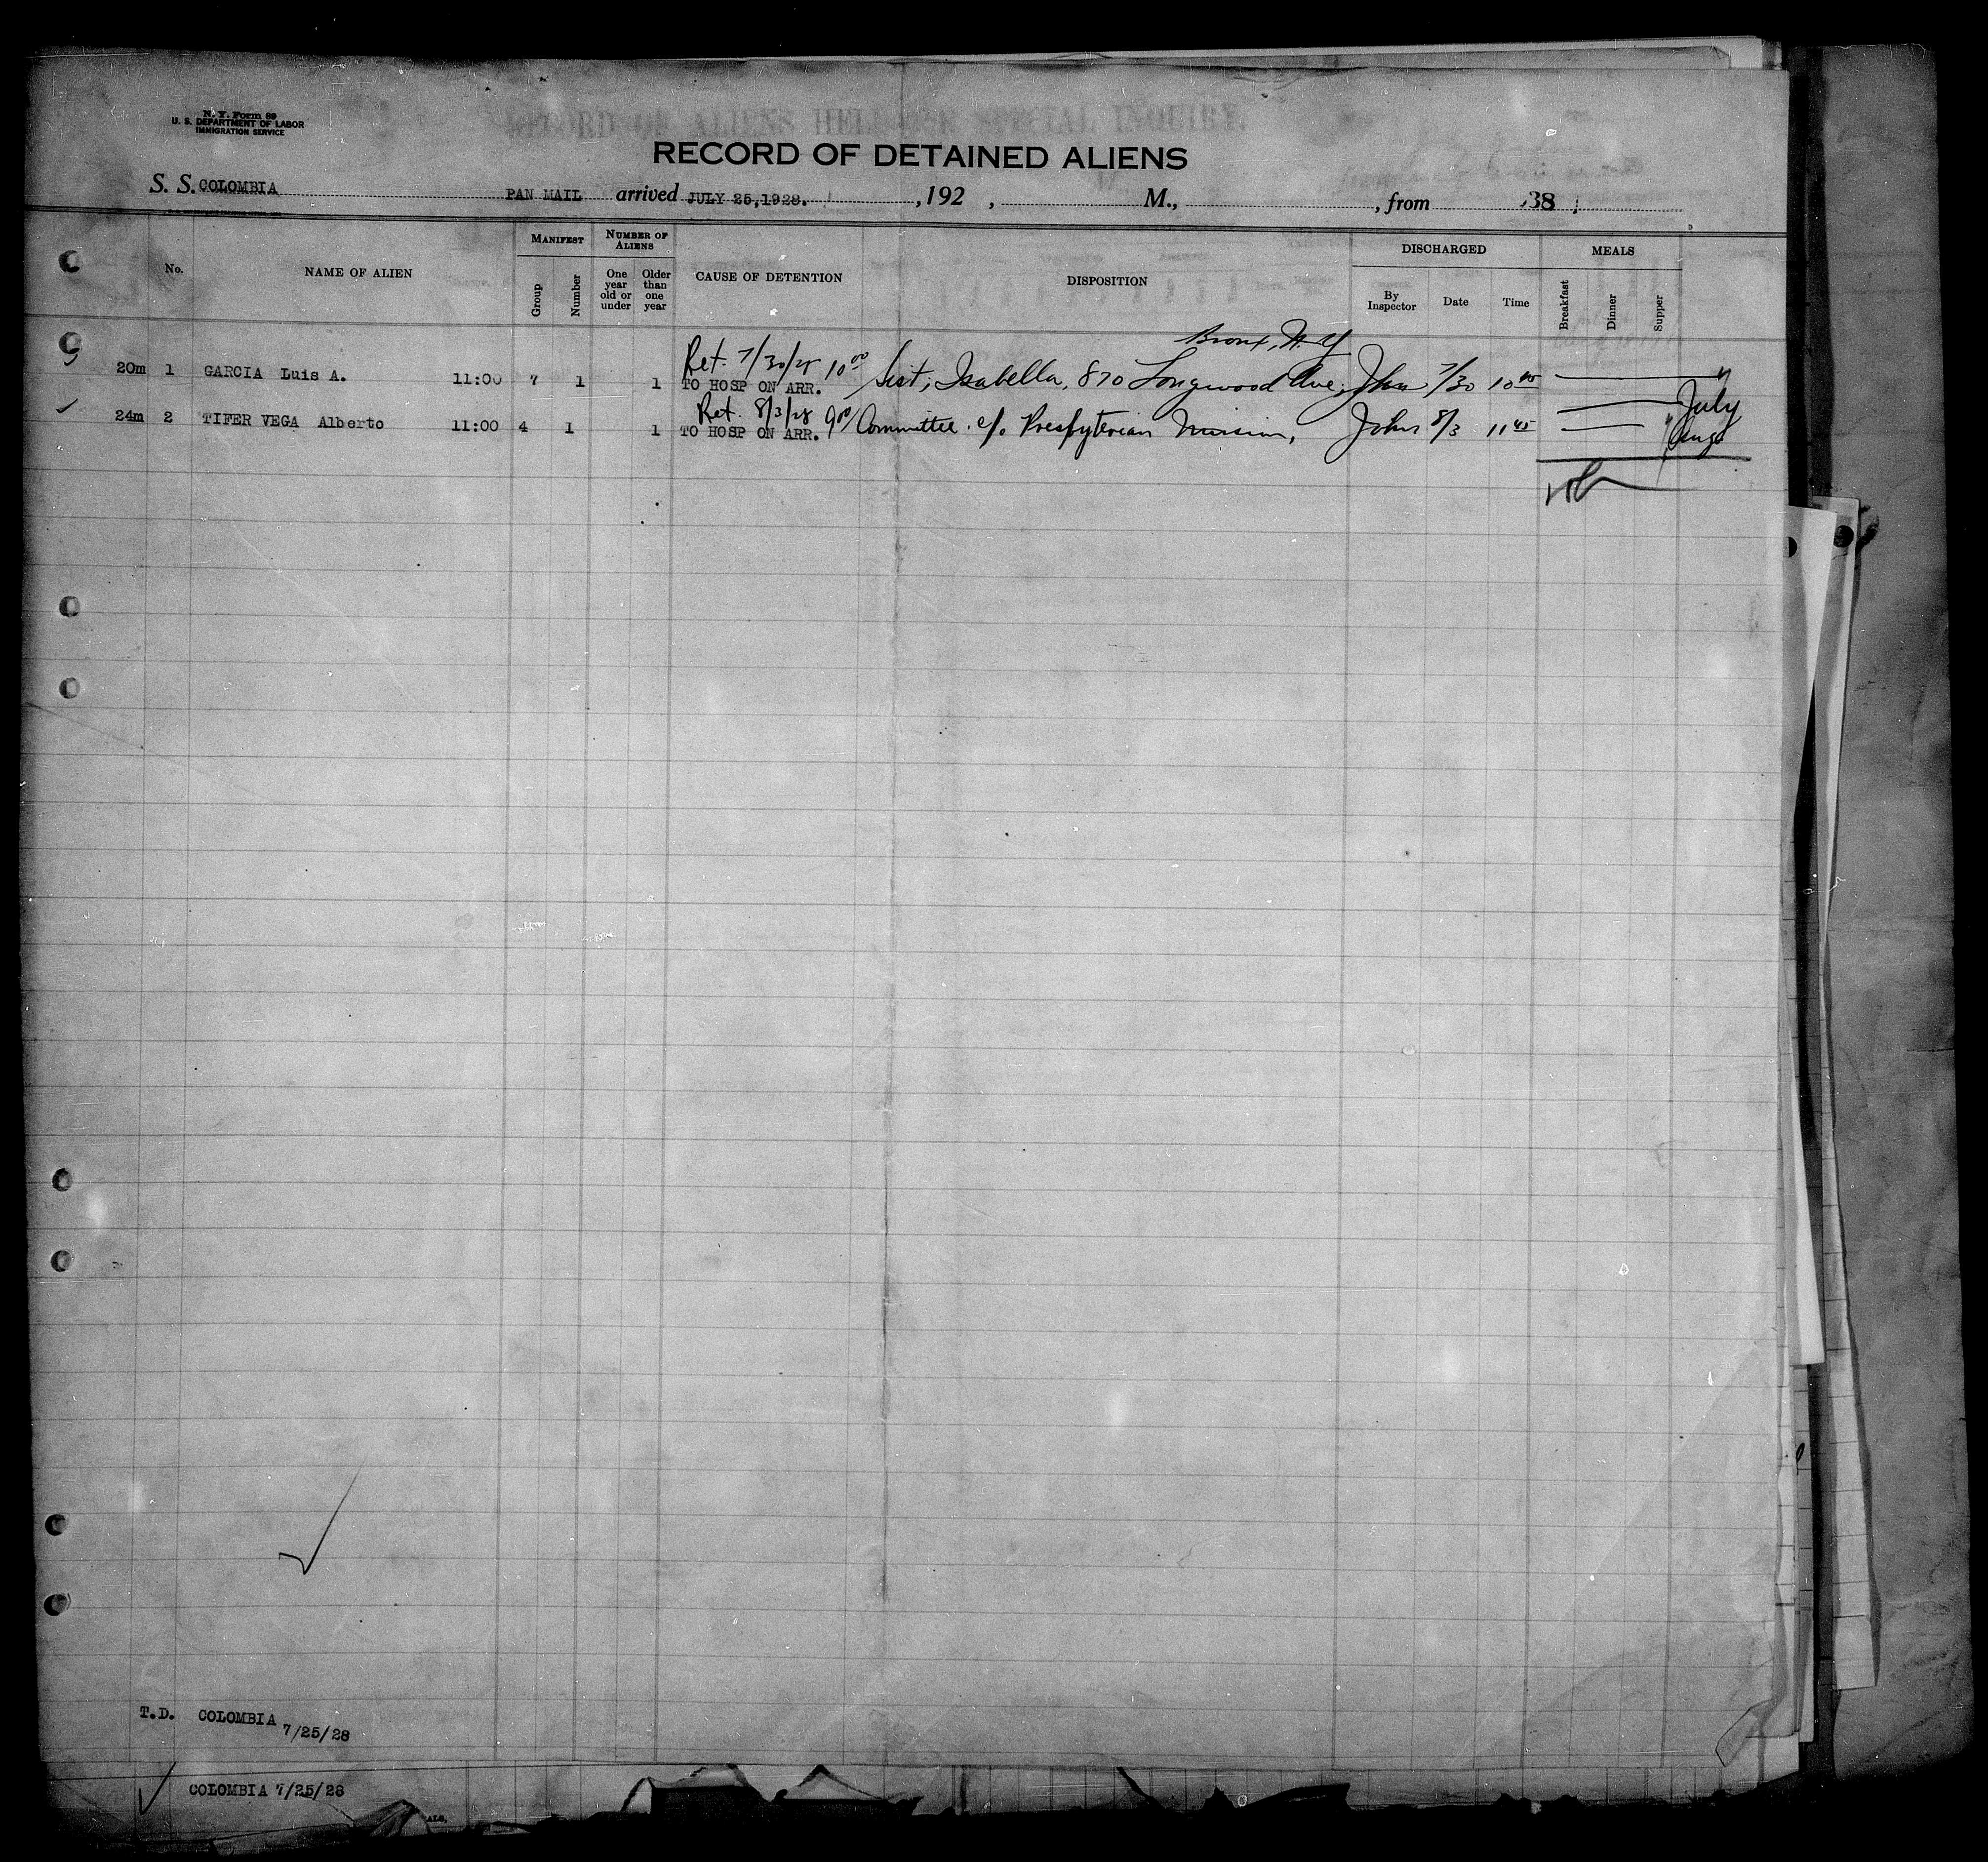 N. Y. Form 89
U. S. DEPARTMENT OF LABOR
IMMIGRATION SERVICE
RECORD OF ALIENS HELD FOR SPECIAL INQUIRY.
RECORD OF DETAINED ALIENS
S. S. COLOMBIA PAN MAIL arrived JULY 25,1928. , 192 , M., , from 38
No. NAME OF ALIEN MANIFEST NUMBER OF ALIENS CAUSE OF DETENTION DISPOSITION DISCHARGED MEALS
Group Number One year old or under Older than one year By Inspector Date Time Breakfast Dinner Supper
Bronx, N.Y
Ret. 7/30/28 10 00
20m 1 GARCIA Luis A. 11:00 7 1 1 TO HOSP ON ARR. Sist, Isabella, 870 Longwood Ave, 7/30 10
Ret. 8/3/28 July
24m 2 TIFER VEGA Alberto 11:00 4 1 1 TO HOSP ON ARR. Committee c/o Presbyterian Mission, 8/3 11 45 Aug
T.D. COLOMBIA 7/25/28
COLOMBIA 7/25/28